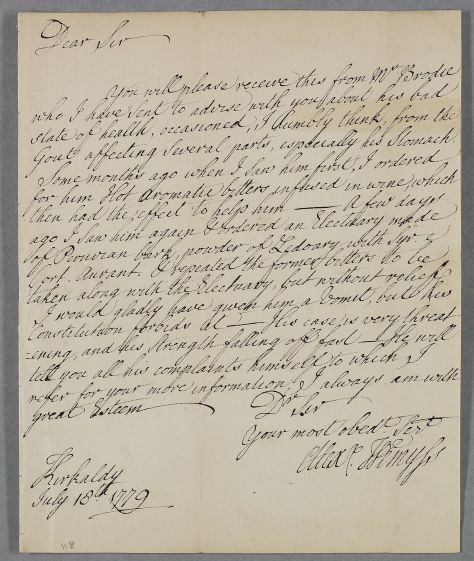 Dear Sir
You will please receive this from Mr Brodie
who I have sent to advise with you about his bad
state of health, occasioned, I humbly think, from the
Gout affecting several parts, especially his Stomach.
Some months ago when I saw him first, I ordered
for him Hot Aromatic bitters infused in wine, which
then had the effect to help him — A few days
ago I saw him again & ordered an Electuary made
of Peruvian bark, powder of Zedoary, with Syr:
Cort. Aurant. & repeated the former bitters to be
taken along with the Electuary, but without relief
I would gladly have given him a vomit, but his
Constitution forbids it — His case is very threat
=ening, and his strength falling off fast — He will
tell you all his complaints himself, to which I
refer for your more information, I always am with
great esteem
Dr Sir
Your most obedt Sert
Alexr Wemyss
Kirkaldy
July 15th 1779